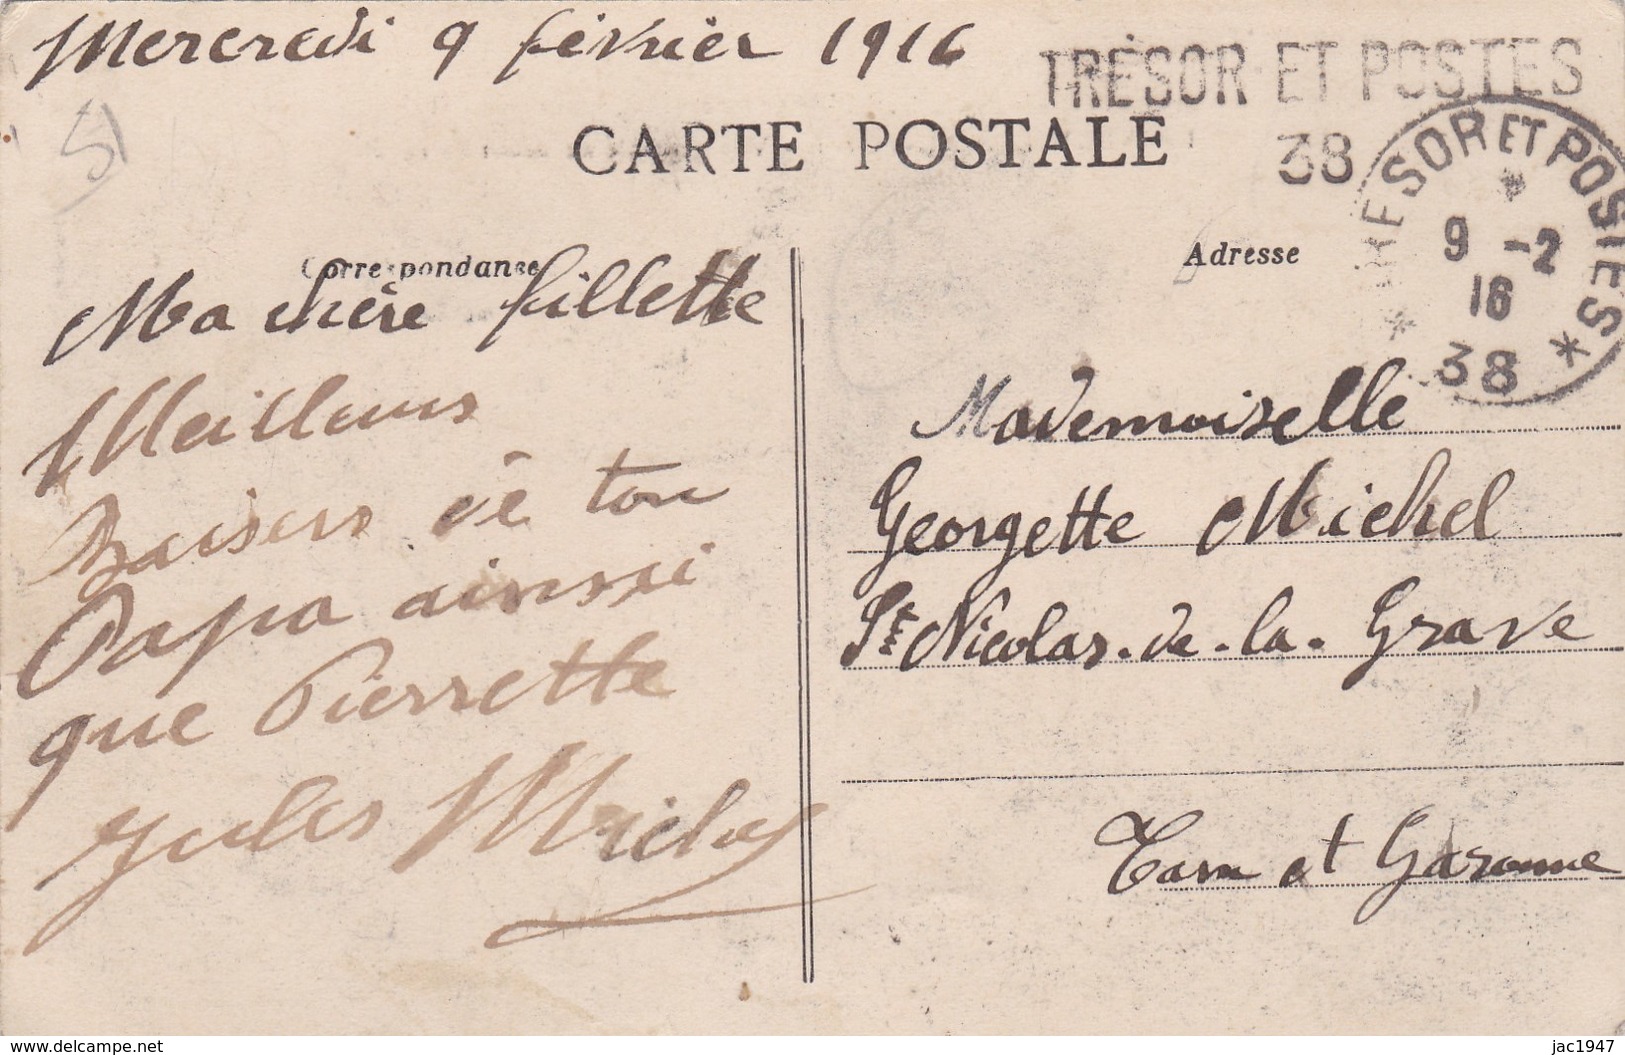 Mercredi 9 février 1916
TRÉSOR ET POSTES
38
CARTE POSTALE
TRESOR ET POSTES
9 -2
16
38
Correspondance
Adresse
Ma chère fillette
Meilleurs
Baisers de ton
Papa ainsi
que Pierrette
Jules Michel
Mademoiselle
Georgette Michel
St Nicolas-de-la-Grave
Tarn et Garonne
51
www.delcampe.net
jac1947